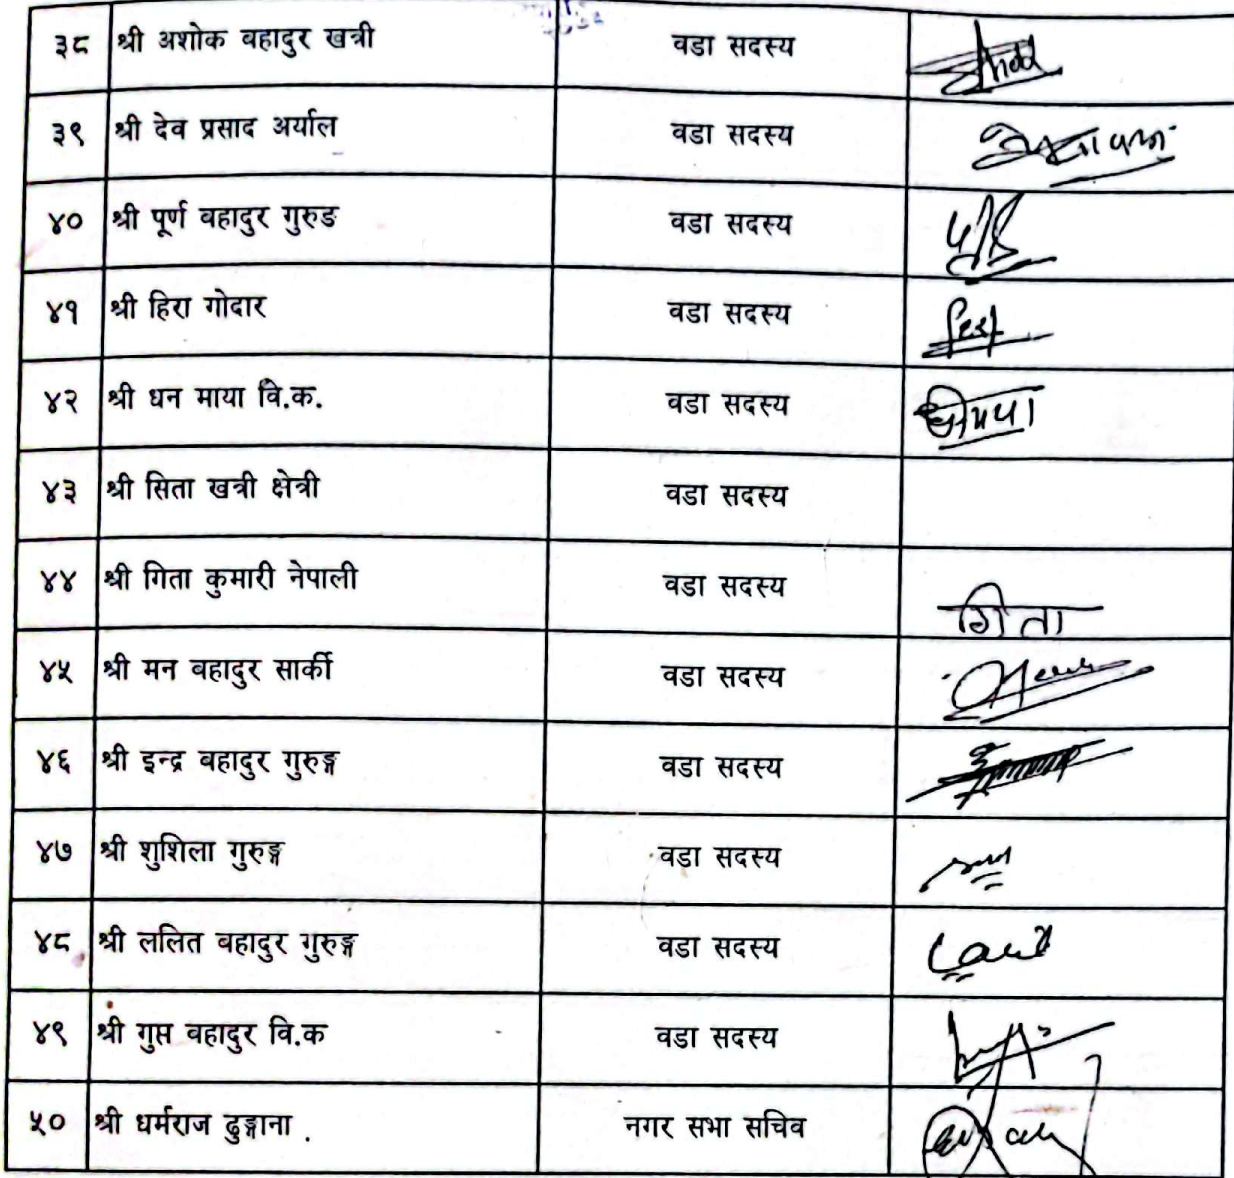 ३८ श्री अशोक बहादुर खत्री वडा सदस्य
३९ श्री देव प्रसाद अर्याल वडा सदस्य
४० श्री पूर्ण बहादुर गुरुङ वडा सदस्य
४१ श्री हिरा गोदार वडा सदस्य
४२ श्री धन माया वि.क. वडा सदस्य
४३ श्री सिता खत्री क्षेत्री वडा सदस्य
४४ श्री गिता कुमारी नेपाली वडा सदस्य गिता
४५ श्री मन बहादुर सार्की वडा सदस्य
४६ श्री इन्द्र बहादुर गुरुङ्ग वडा सदस्य
४७ श्री शुशिला गुरुङ्ग वडा सदस्य
४८ श्री ललित बहादुर गुरुङ्ग वडा सदस्य
४९ श्री गुप्त बहादुर वि.क वडा सदस्य
५० श्री धर्मराज ढुङ्गाना . नगर सभा सचिव